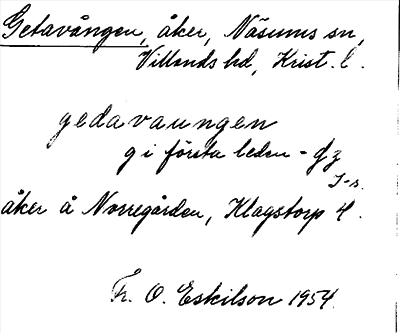 Getavången, åker, Näsums sn,
Villands hd, Krist. l.
gedavaungen
g i första leden - gz
J-r.
åker å Norregården, Klagstorp 4.
Fr. O. Eskilson 1954.